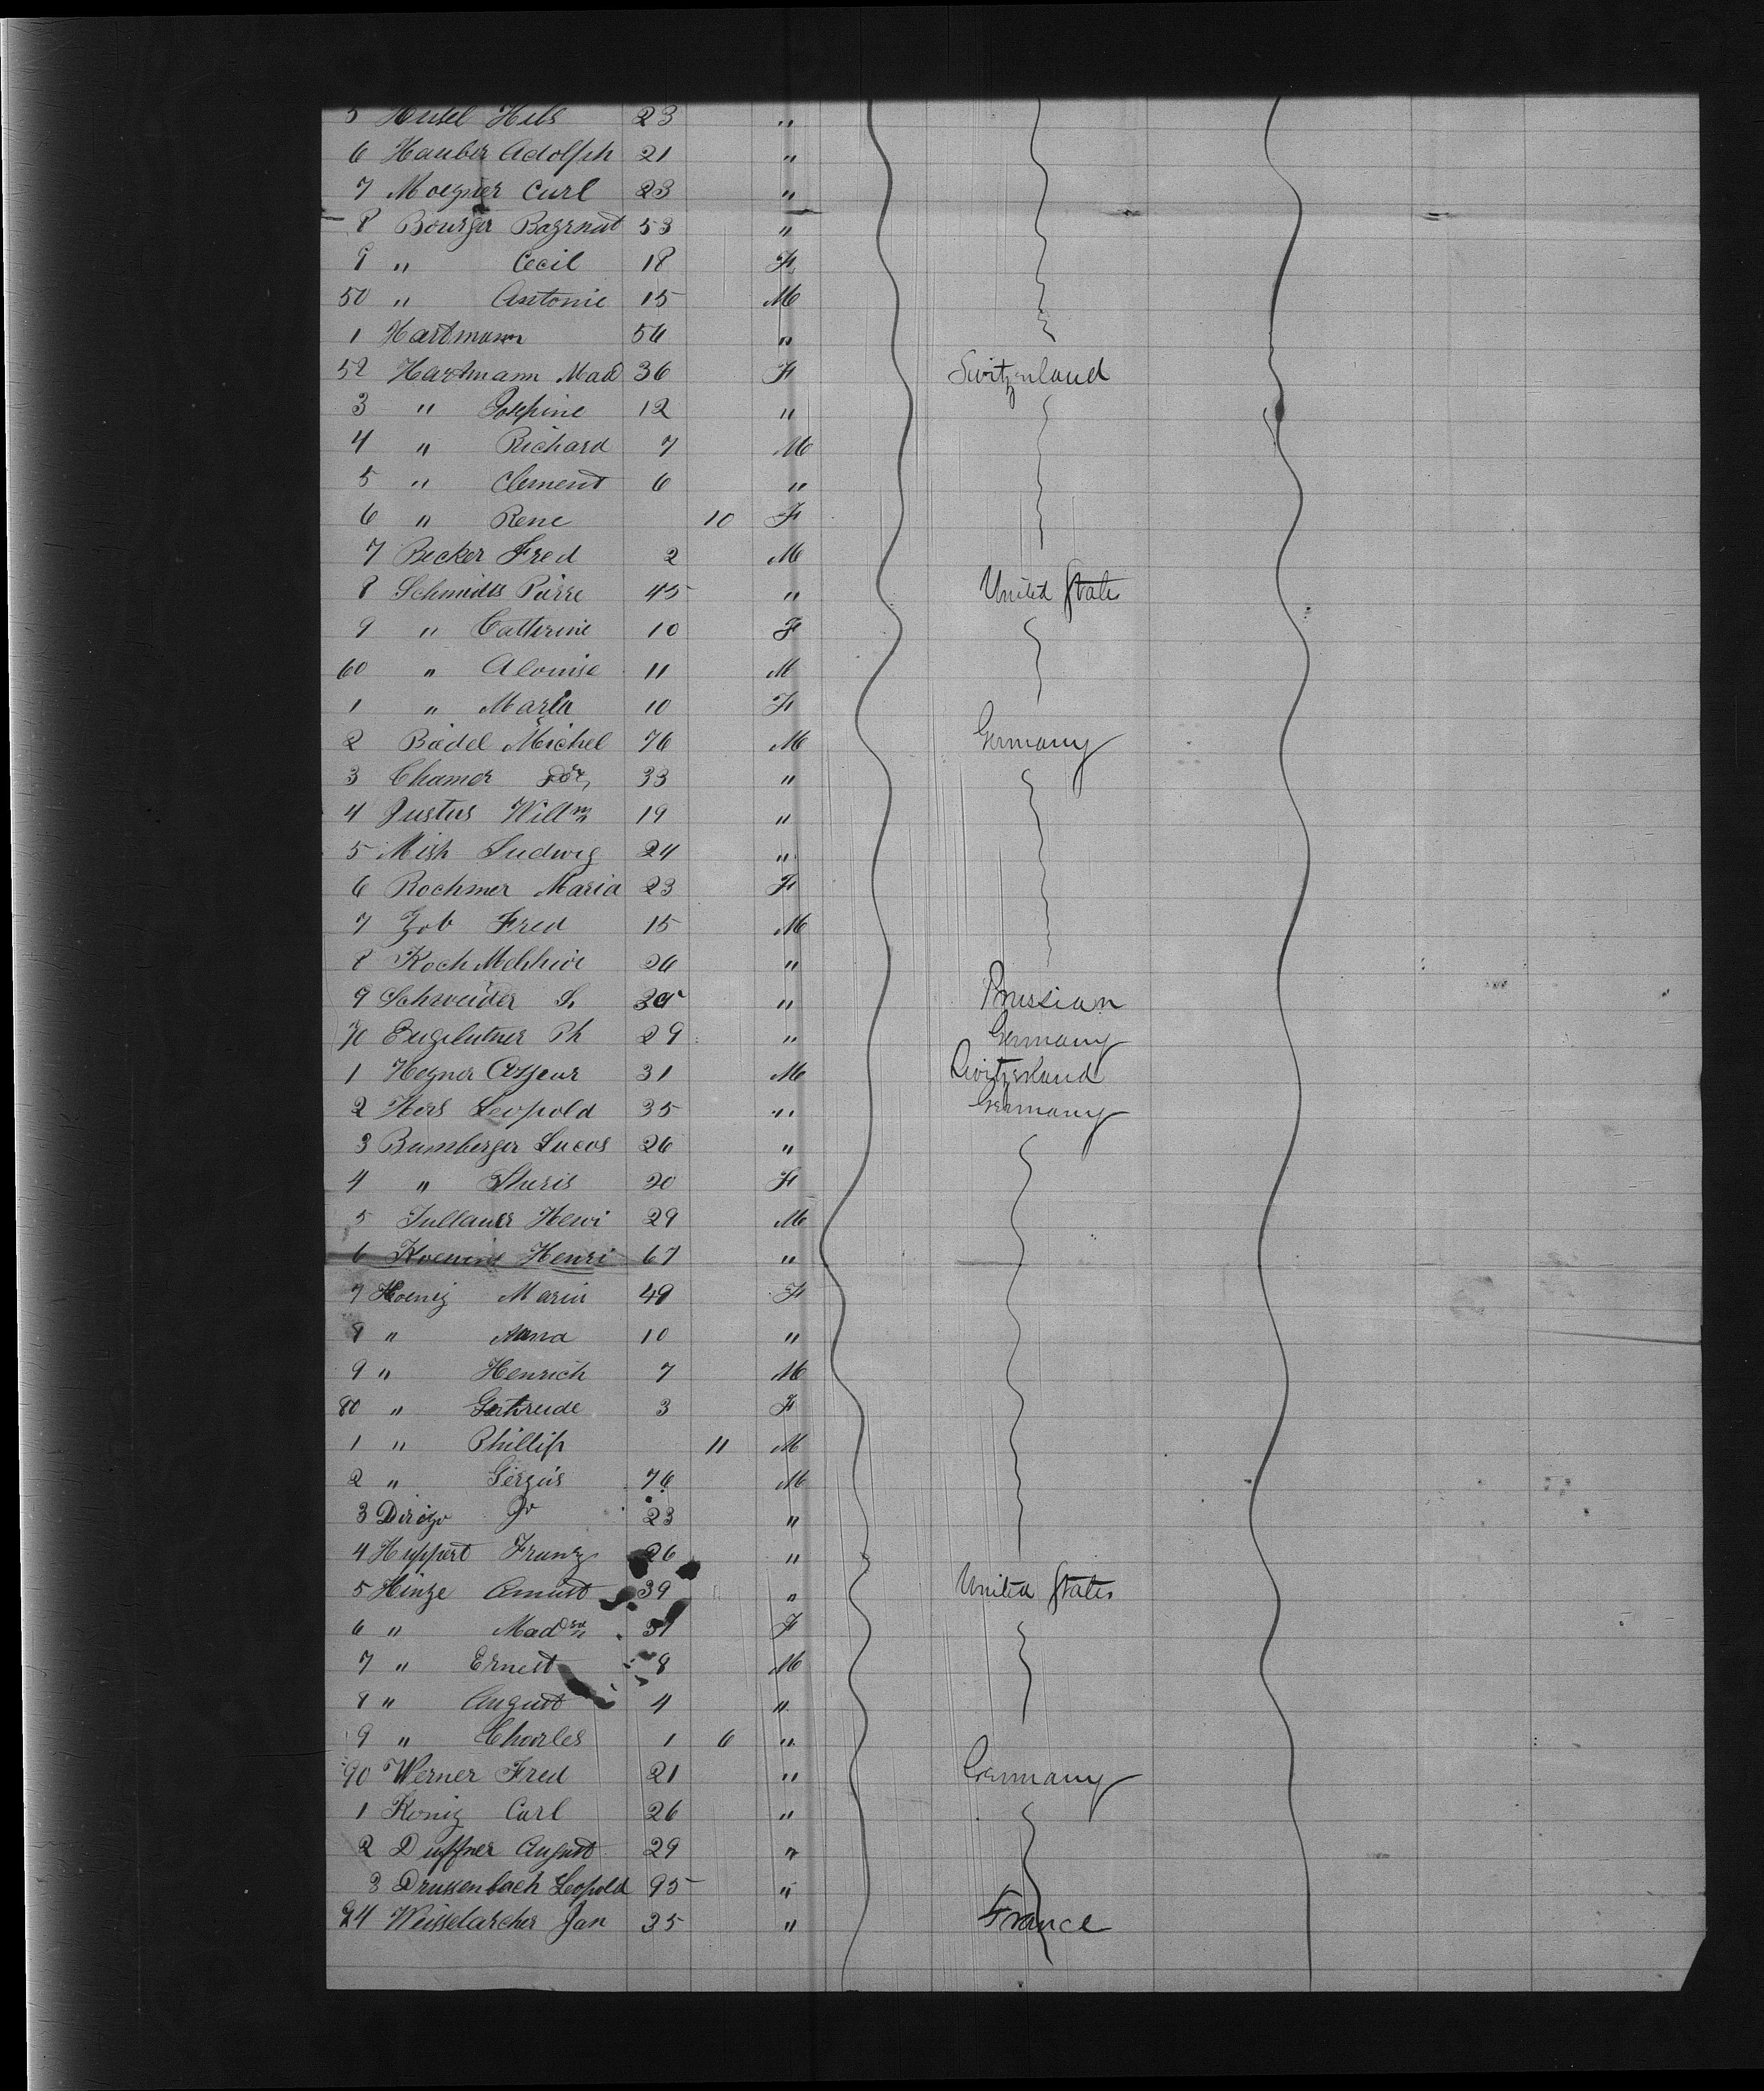 5 Husel Hils 23 "
6 Hauber Adolph 21 "
7 Moegner Curl 23 "
8 Bourger 53 "
9 " Cecil 18 F
50 " Antonie 15 M
1 Hartmann 56 "
52 Hartmann Mad 36 F Switzerland
3 " Josephine 12 "
4 " Richard 7 M
5 " Clement 6 "
6 " Rene 10 F
7 Becker Fred 2 M
8 Schmidts Pierre 45 " United States
9 " Catherine 10 F
60 " Alouise 11 M
1 " Maria 10 F
2 Biedel Michel 76 M Germany
3 Chamer 33 "
4 Justus Willm 19 "
5 Mish Ludwig 24 "
6 Rochmer Maria 23 F
7 Zob Fred 15 M
8 Koch 26 "
9 Schneider S. " Prussian
70 Ph 29 " Germany
1 Hegner 31 M Switzerland
2 Hers Leopold 35 " Germany
3 Bamberger Lucas 26 "
4 " 20 F
5 Henri 29 M
6 Henri 67 "
7 Hoenig Maria 49 F
8 " Anna 10 "
9 " Henrich 7 M
80 " Gertrude 3 F
1 " Phillip 11 M
2 " 76 M
3 Dirigo Jo 23 "
4 Huppert Franz 26 "
5 Hinze 39 " United States
6 " Madm 31 F
7 " Ernest 8 M
8 " August 4 "
9 " Charles 1 6 "
90 Werner Fred 21 " Germany
1 Konig Carl 26 "
2 Duffner August 29 "
3 Drussenbach Leopold 95 "
94 Weisselarcher Jan 35 " France